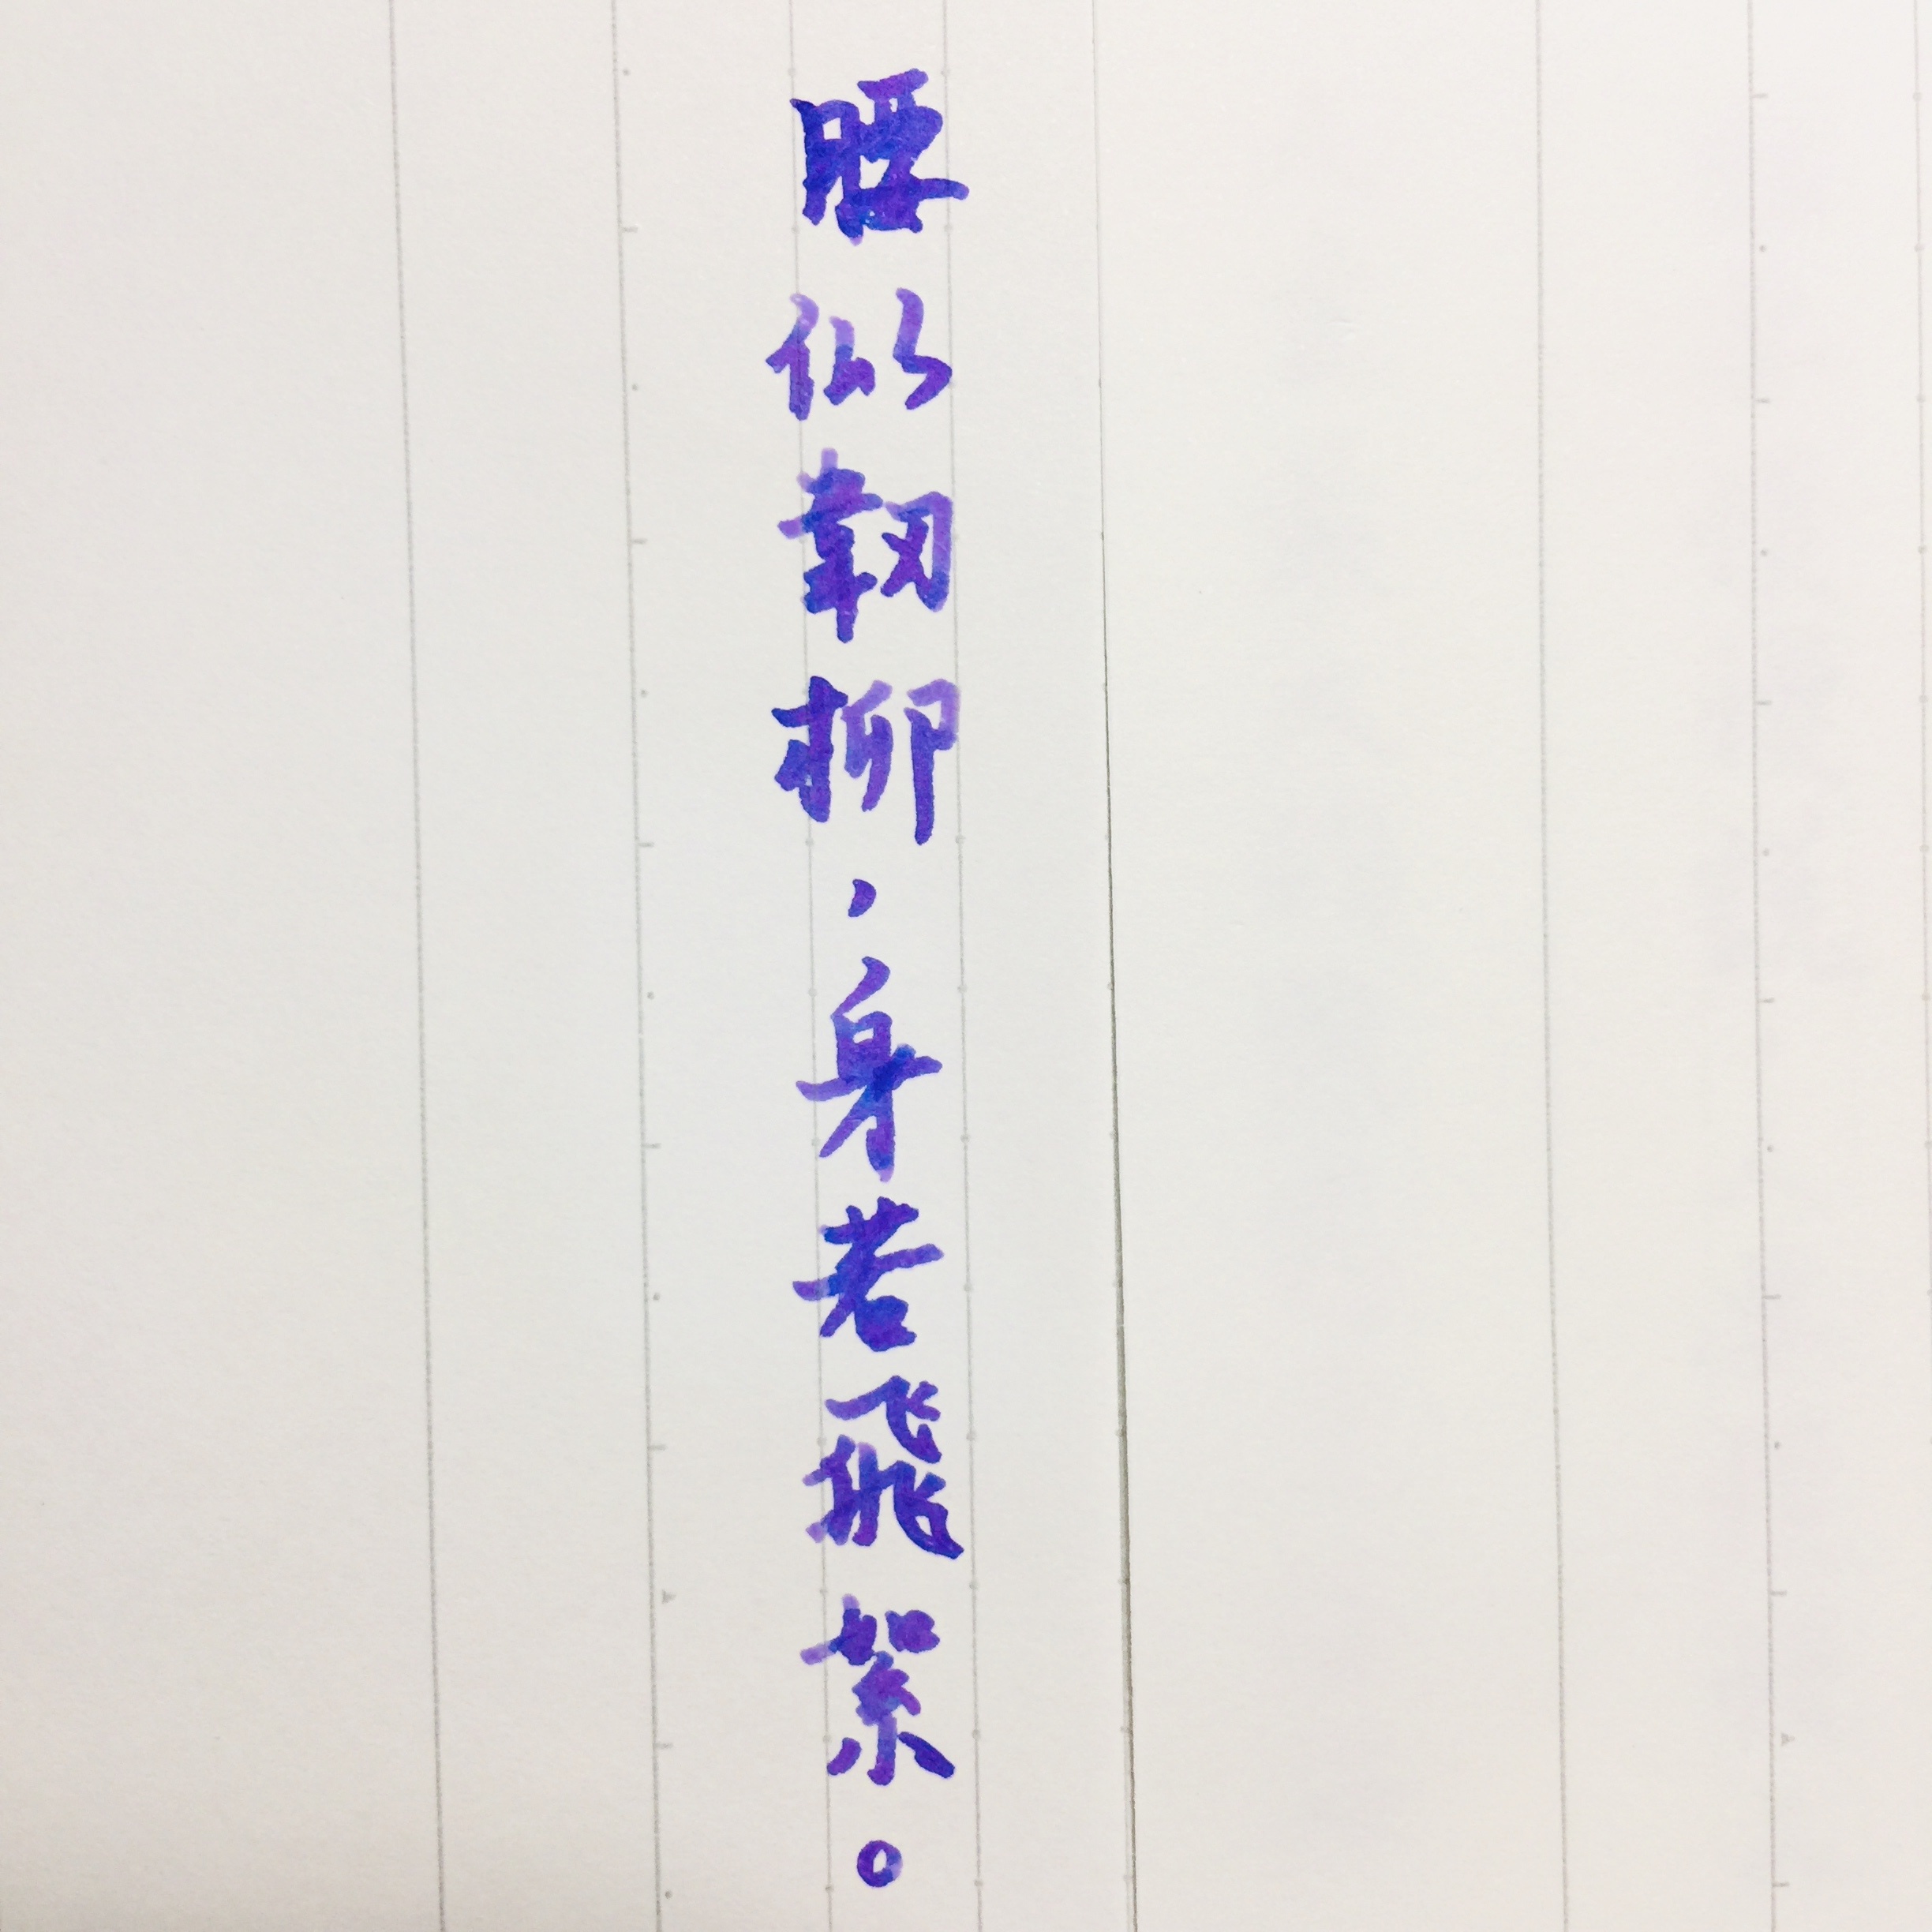 腰似韌柳，身若飛絮。